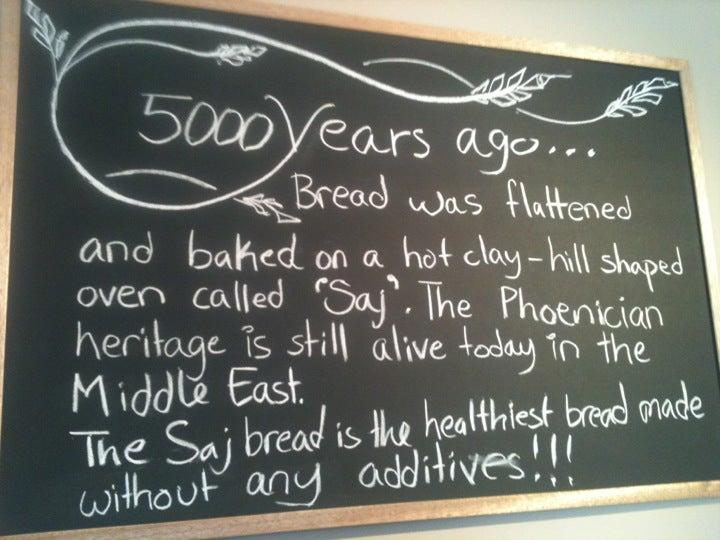 5000 Years ago...
Bread was flattened
and baked on a hot clay-hill shaped
oven called 'Saj'. The Phoenician
heritage is still alive today in the
Middle East.
The Saj bread is the healthiest bread made
without any additives!!!